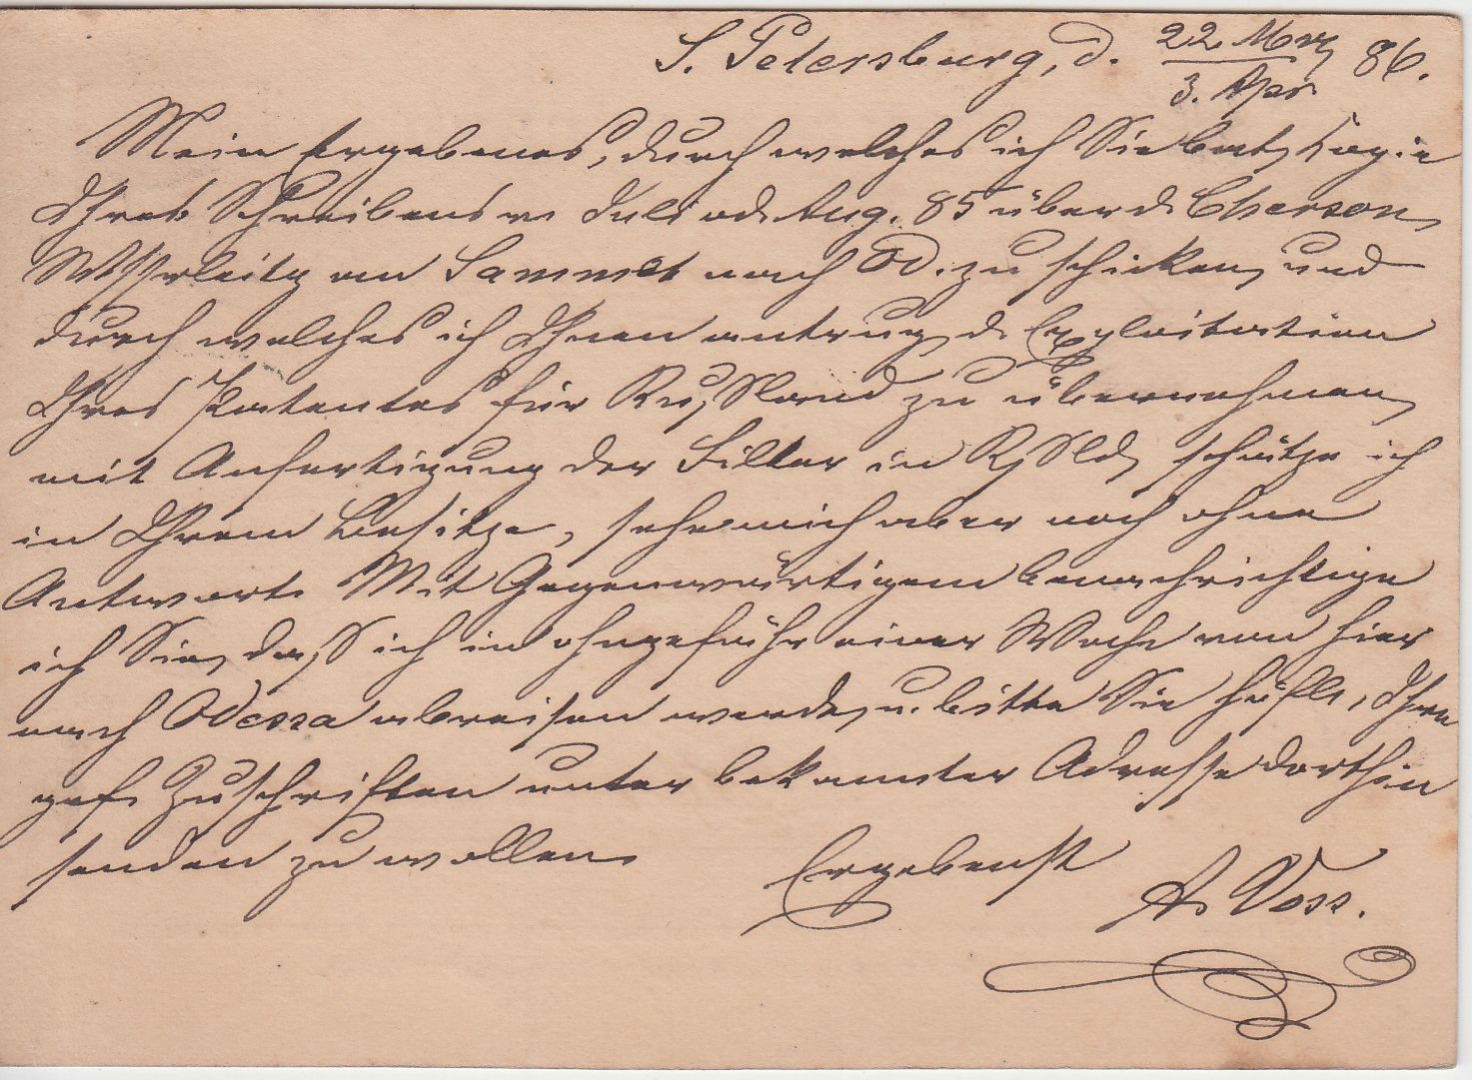 S. Petersburg, d. 22. März 86.
3. Apr.
Mein Ergebenes, durch welches ich Sie bat, Copie
Ihres Schreibens v. Juli od. Aug. 85 über d. Cherson,
Wsserleitg an Sammet nach Od. zu schicken, und
durch welches ich Ihnen antrug, d. Exploitation
Ihres Patentes für Rußland zu übernehmen,
mit Anfertigung der Filter in Rßld, schätze ich
in Ihrem Besitze, sehe mich aber noch ohne
Antwort. Mit Gegenwärtigem benachrichtige
ich Sie, daß ich in ohngefähr einer Woche von hier
nach Odessa abreisen werde, u. bitte Sie höfl., Ihre
gef. Zuschriften unter bekannter Adresse dorthin
senden zu wollen.
Ergebenst
A. Voss.